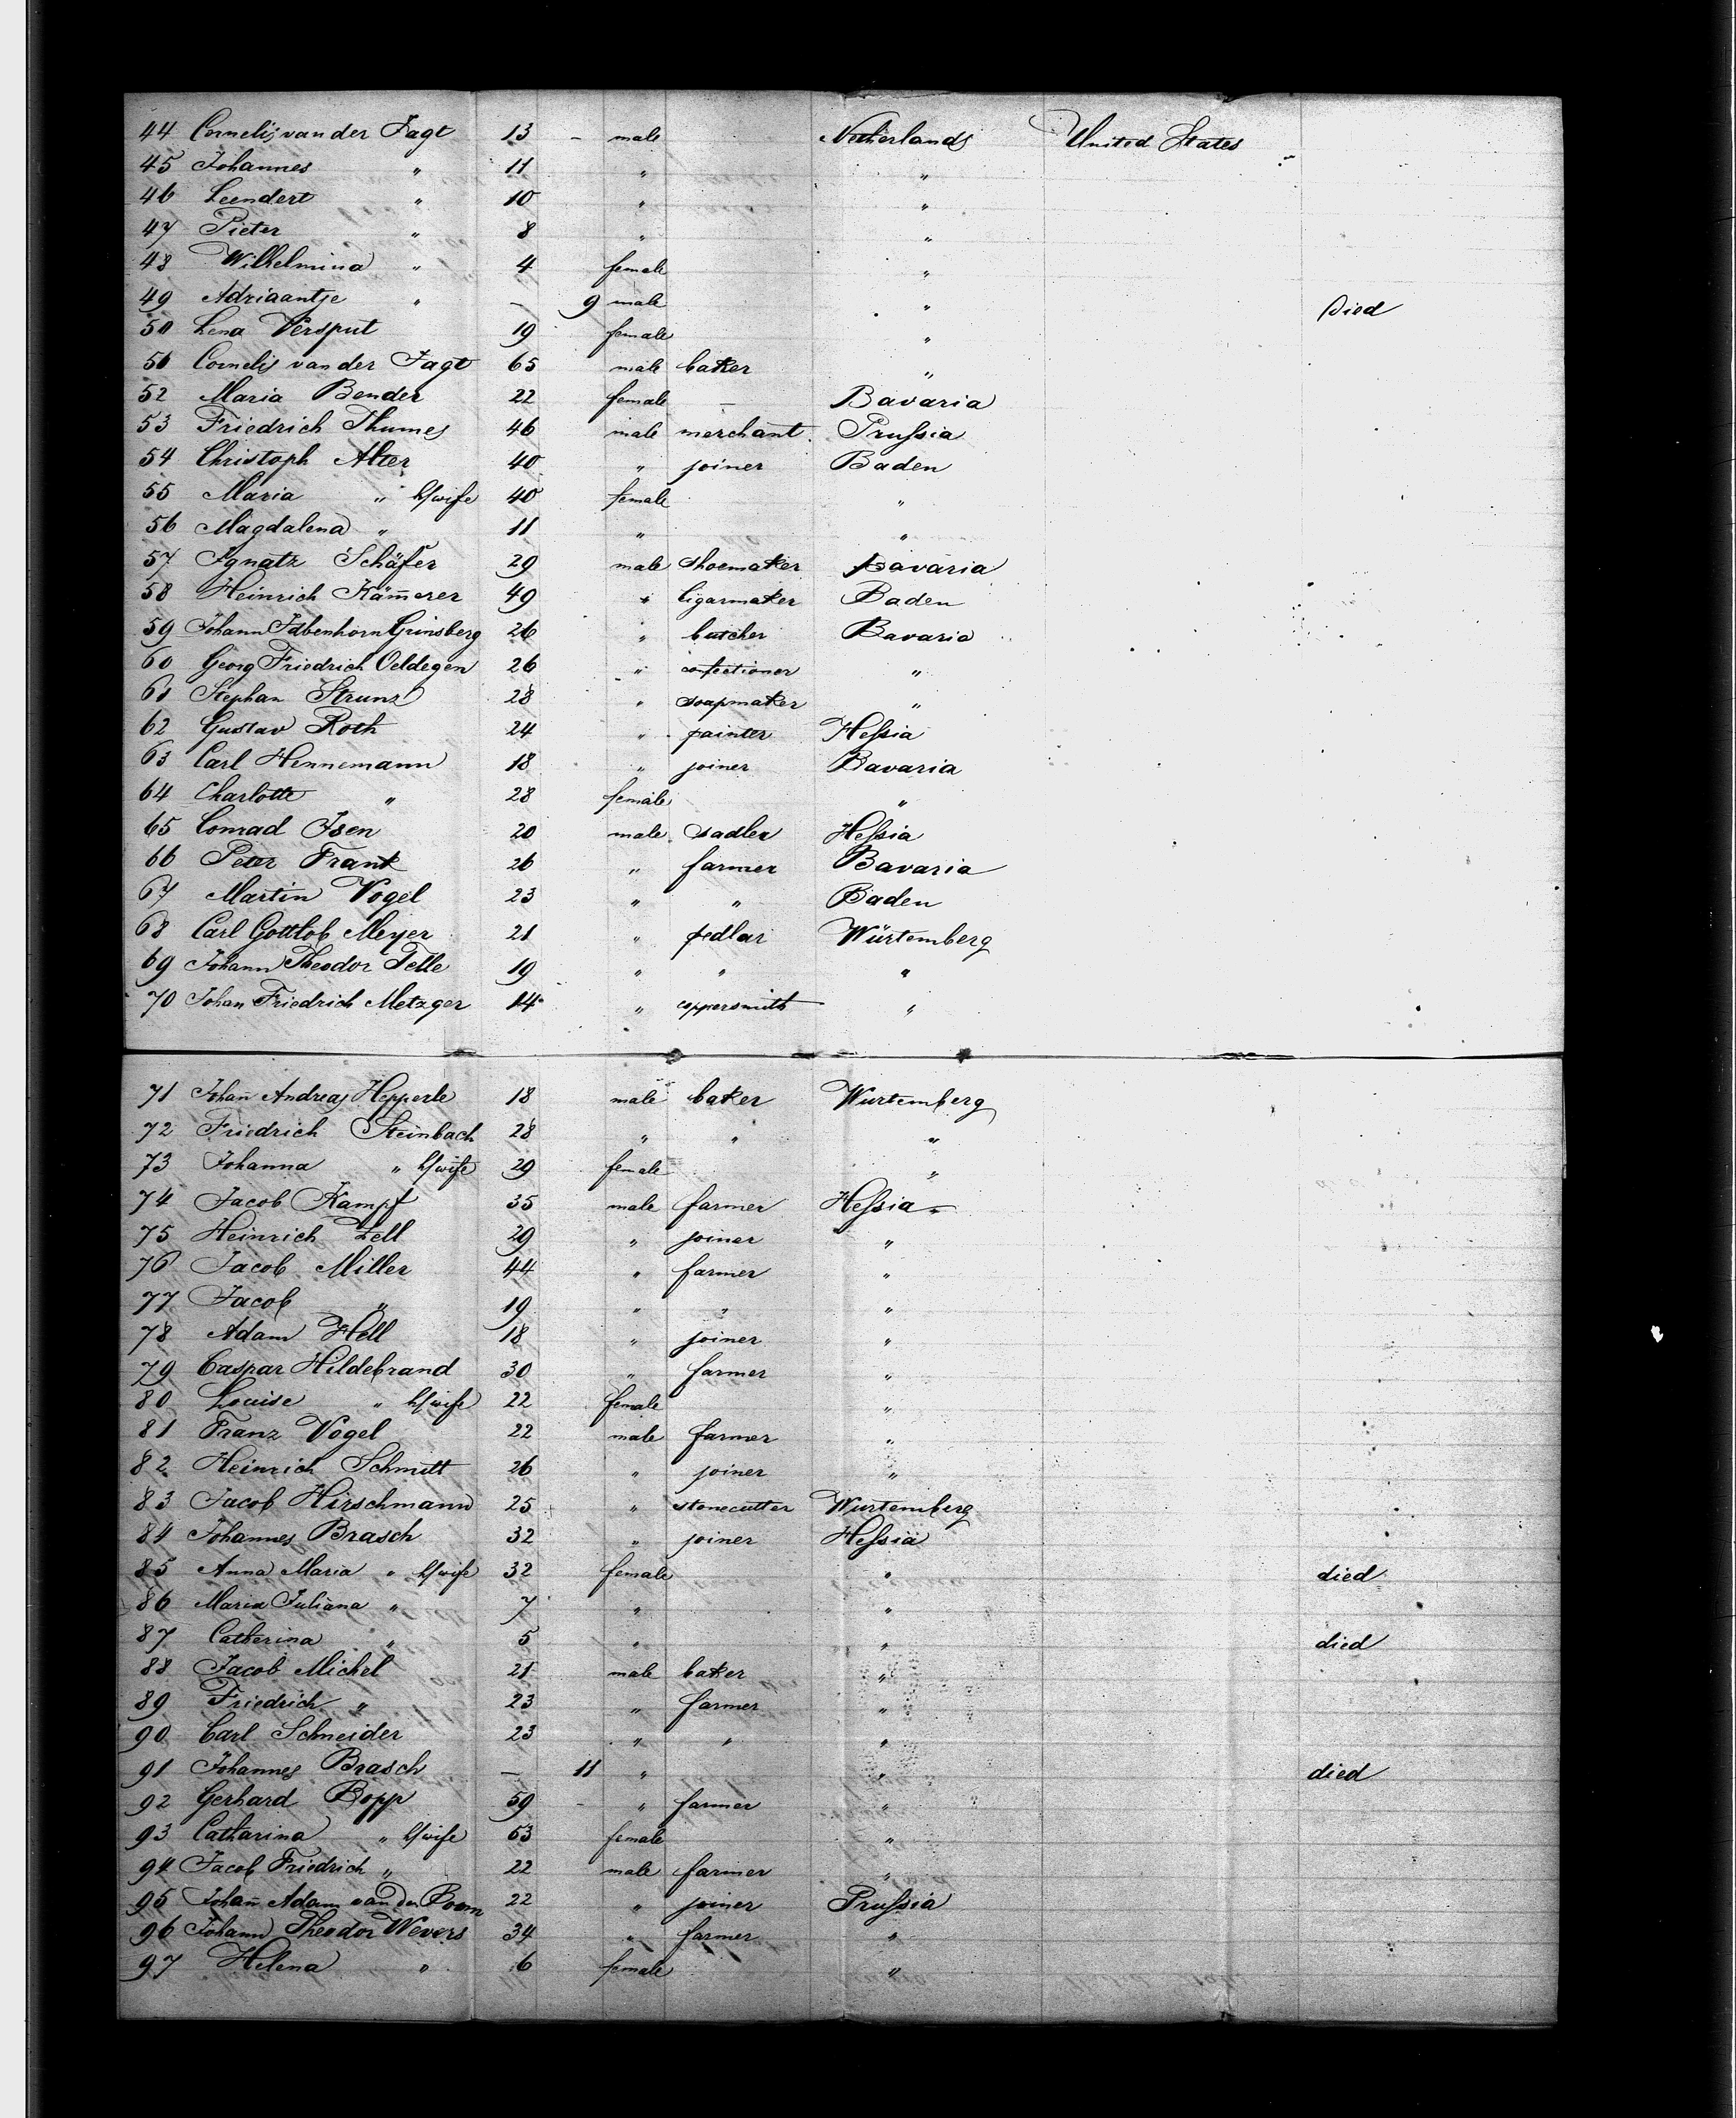 44 Cornelis van der Jagt 13 - male Netherlands United States
45 Johannes " 11 " "
46 Leendert " 10 " "
47 Pieter " 8 " "
48 Wilhelmina " 4 female "
49 Adriaantje " - 9 male " Died
50 Lena Versput 19 female "
51 Cornelis van der Jagt 65 male baker "
52 Maria Bender 22 female - Bavaria
53 Friedrich Thumes 46 male merchant Prussia
54 Christoph Alter 40 " joiner Baden
55 Maria " h/wife 40 female "
56 Magdalena " 11 " "
57 Ignatz Schäfer 29 male shoemaker Bavaria
58 Heinrich Kam̄erer 49 " Cigarmaker Baden
59 Johann Grinsberg 26 " butcher Bavaria
60 Georg Friedrich Oeldegen 26 " confectioner "
61 Stephan Strunz 28 " soapmaker "
62 Gustav Roth 24 " painter Hessia
63 Carl Hennemann 18 " joiner Bavaria
64 Charlotte " 28 female "
65 Conrad Isen 20 male sadler Hessia
66 Peter Frank 26 " farmer Bavaria
67 Martin Vogel 23 " " Baden
68 Carl Gottlob Meyer 21 " pedlar Würtemberg
69 Johann Theodor Telle 19 " " "
70 Johan Friedrich Metzger 14 " coppersmith "
71 Johan̄ Andreas Hepperle 18 male baker Wurtemberg
72 Friedrich Steinbach 28 " " "
73 Johanna " h/wife 29 female "
74 Jacob Kampf 35 male farmer Hessia
75 Heinrich Zell 29 " joiner "
76 Jacob Miller 44 " farmer "
77 Jacob " 19 " " "
78 Adam Hell 18 " joiner "
79 Caspar Hildebrand 30 " farmer "
80 Louise " h/wife 22 female "
81 Franz Vogel 22 male farmer "
82 Heinrich Schmitt 26 " joiner "
83 Jacob Hirschmann 25 " stonecutter Wurtemberg
84 Johannes Brasch 32 " joiner Hessia
85 Anna Maria " h/wife 32 female " died
86 Maria Juliana " 7 " "
87 Catherina " 5 " " died
88 Jacob Michel 21 male baker "
89 Friedrich " 23 " farmer "
90 Carl Schneider 23 " " "
91 Johannes Brasch - 11 " " died
92 Gerhard Bopp 59 - " farmer "
93 Catharina " h/wife 53 female "
94 Jacob Friedrich " 22 male farmer "
95 Johan̄ Adam van den Boom 22 " joiner Prussia
96 Johann Theodor Wevers 34 " farmer "
97 Helena " 6 female "